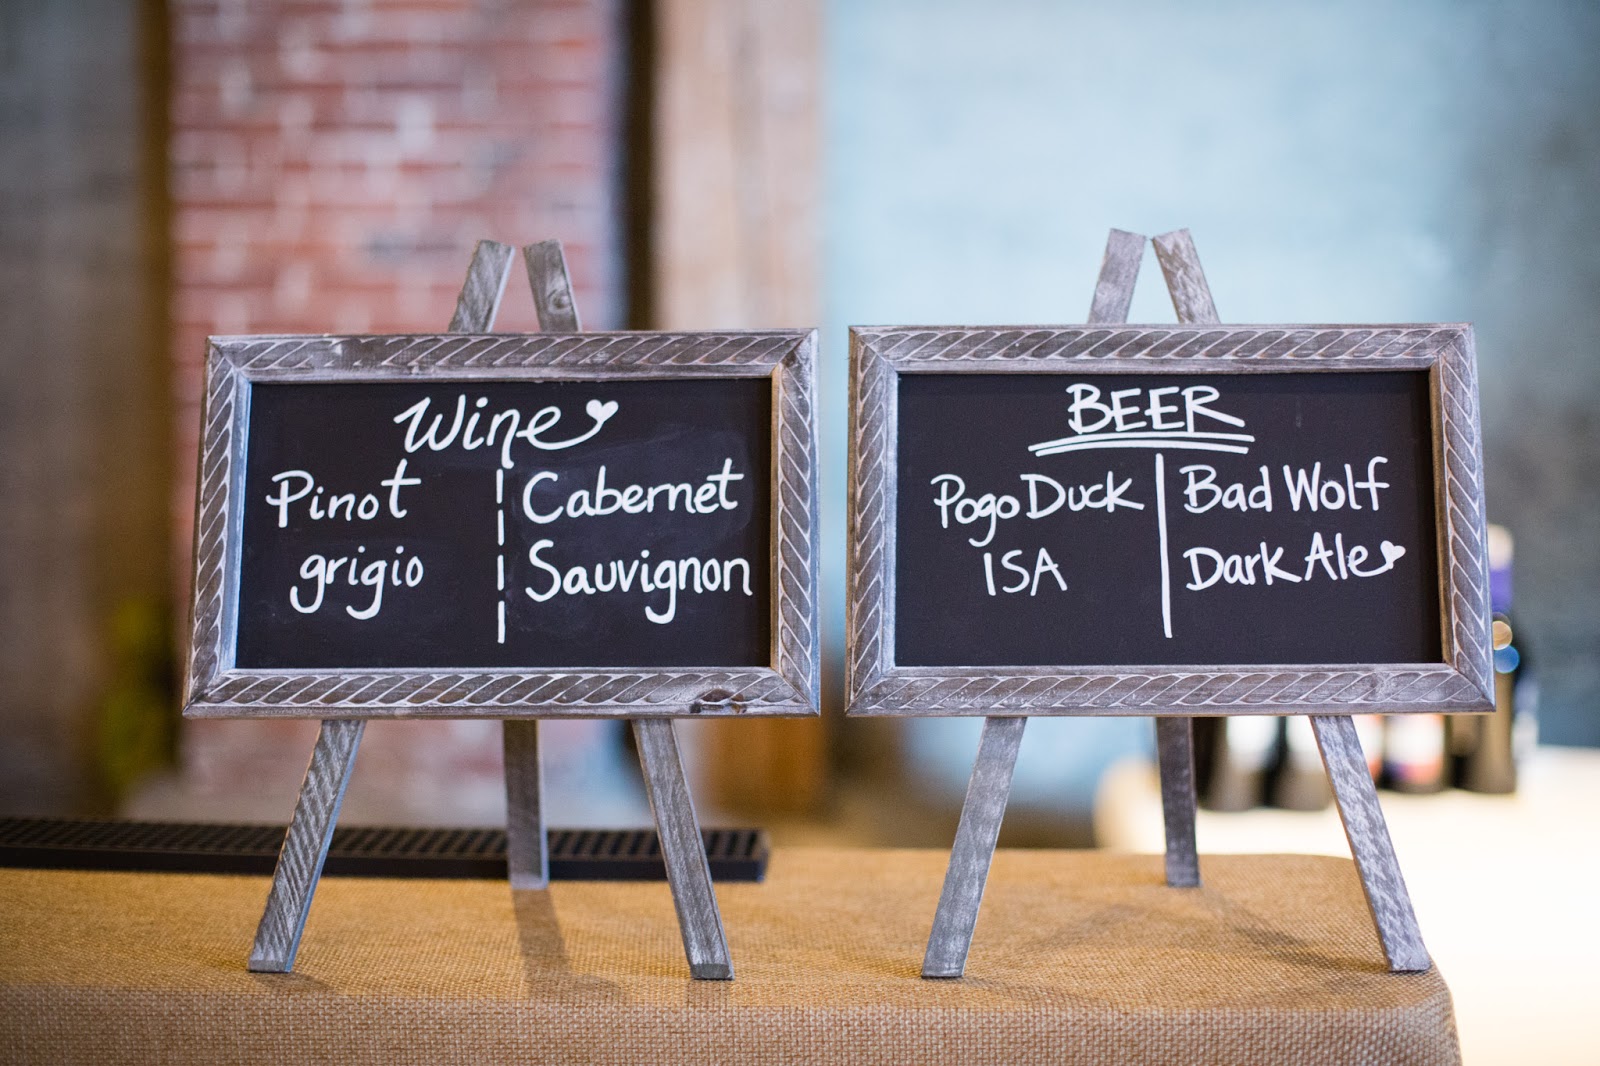 Wine
Pinot
grigio
Cabernet
Sauvignon
BEER
Pogo Duck
ISA
Bad Wolf
Dark Ale